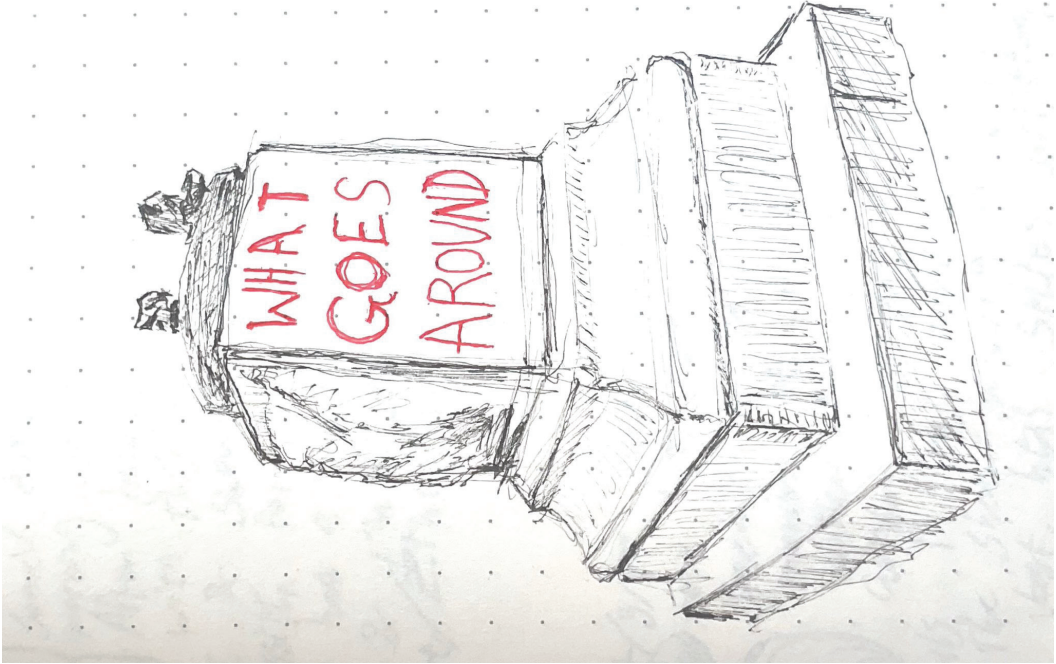 WHAT
GOES
AROUND